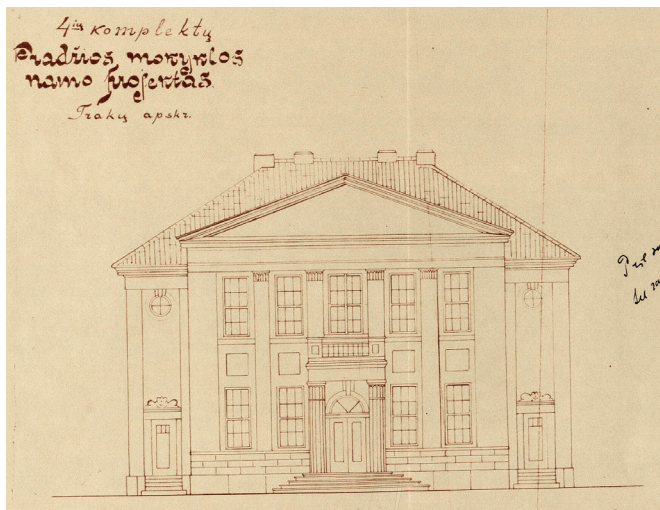 4ių komplektų
Pradžios mokyklos
namo projektas.
Trakų apskr.